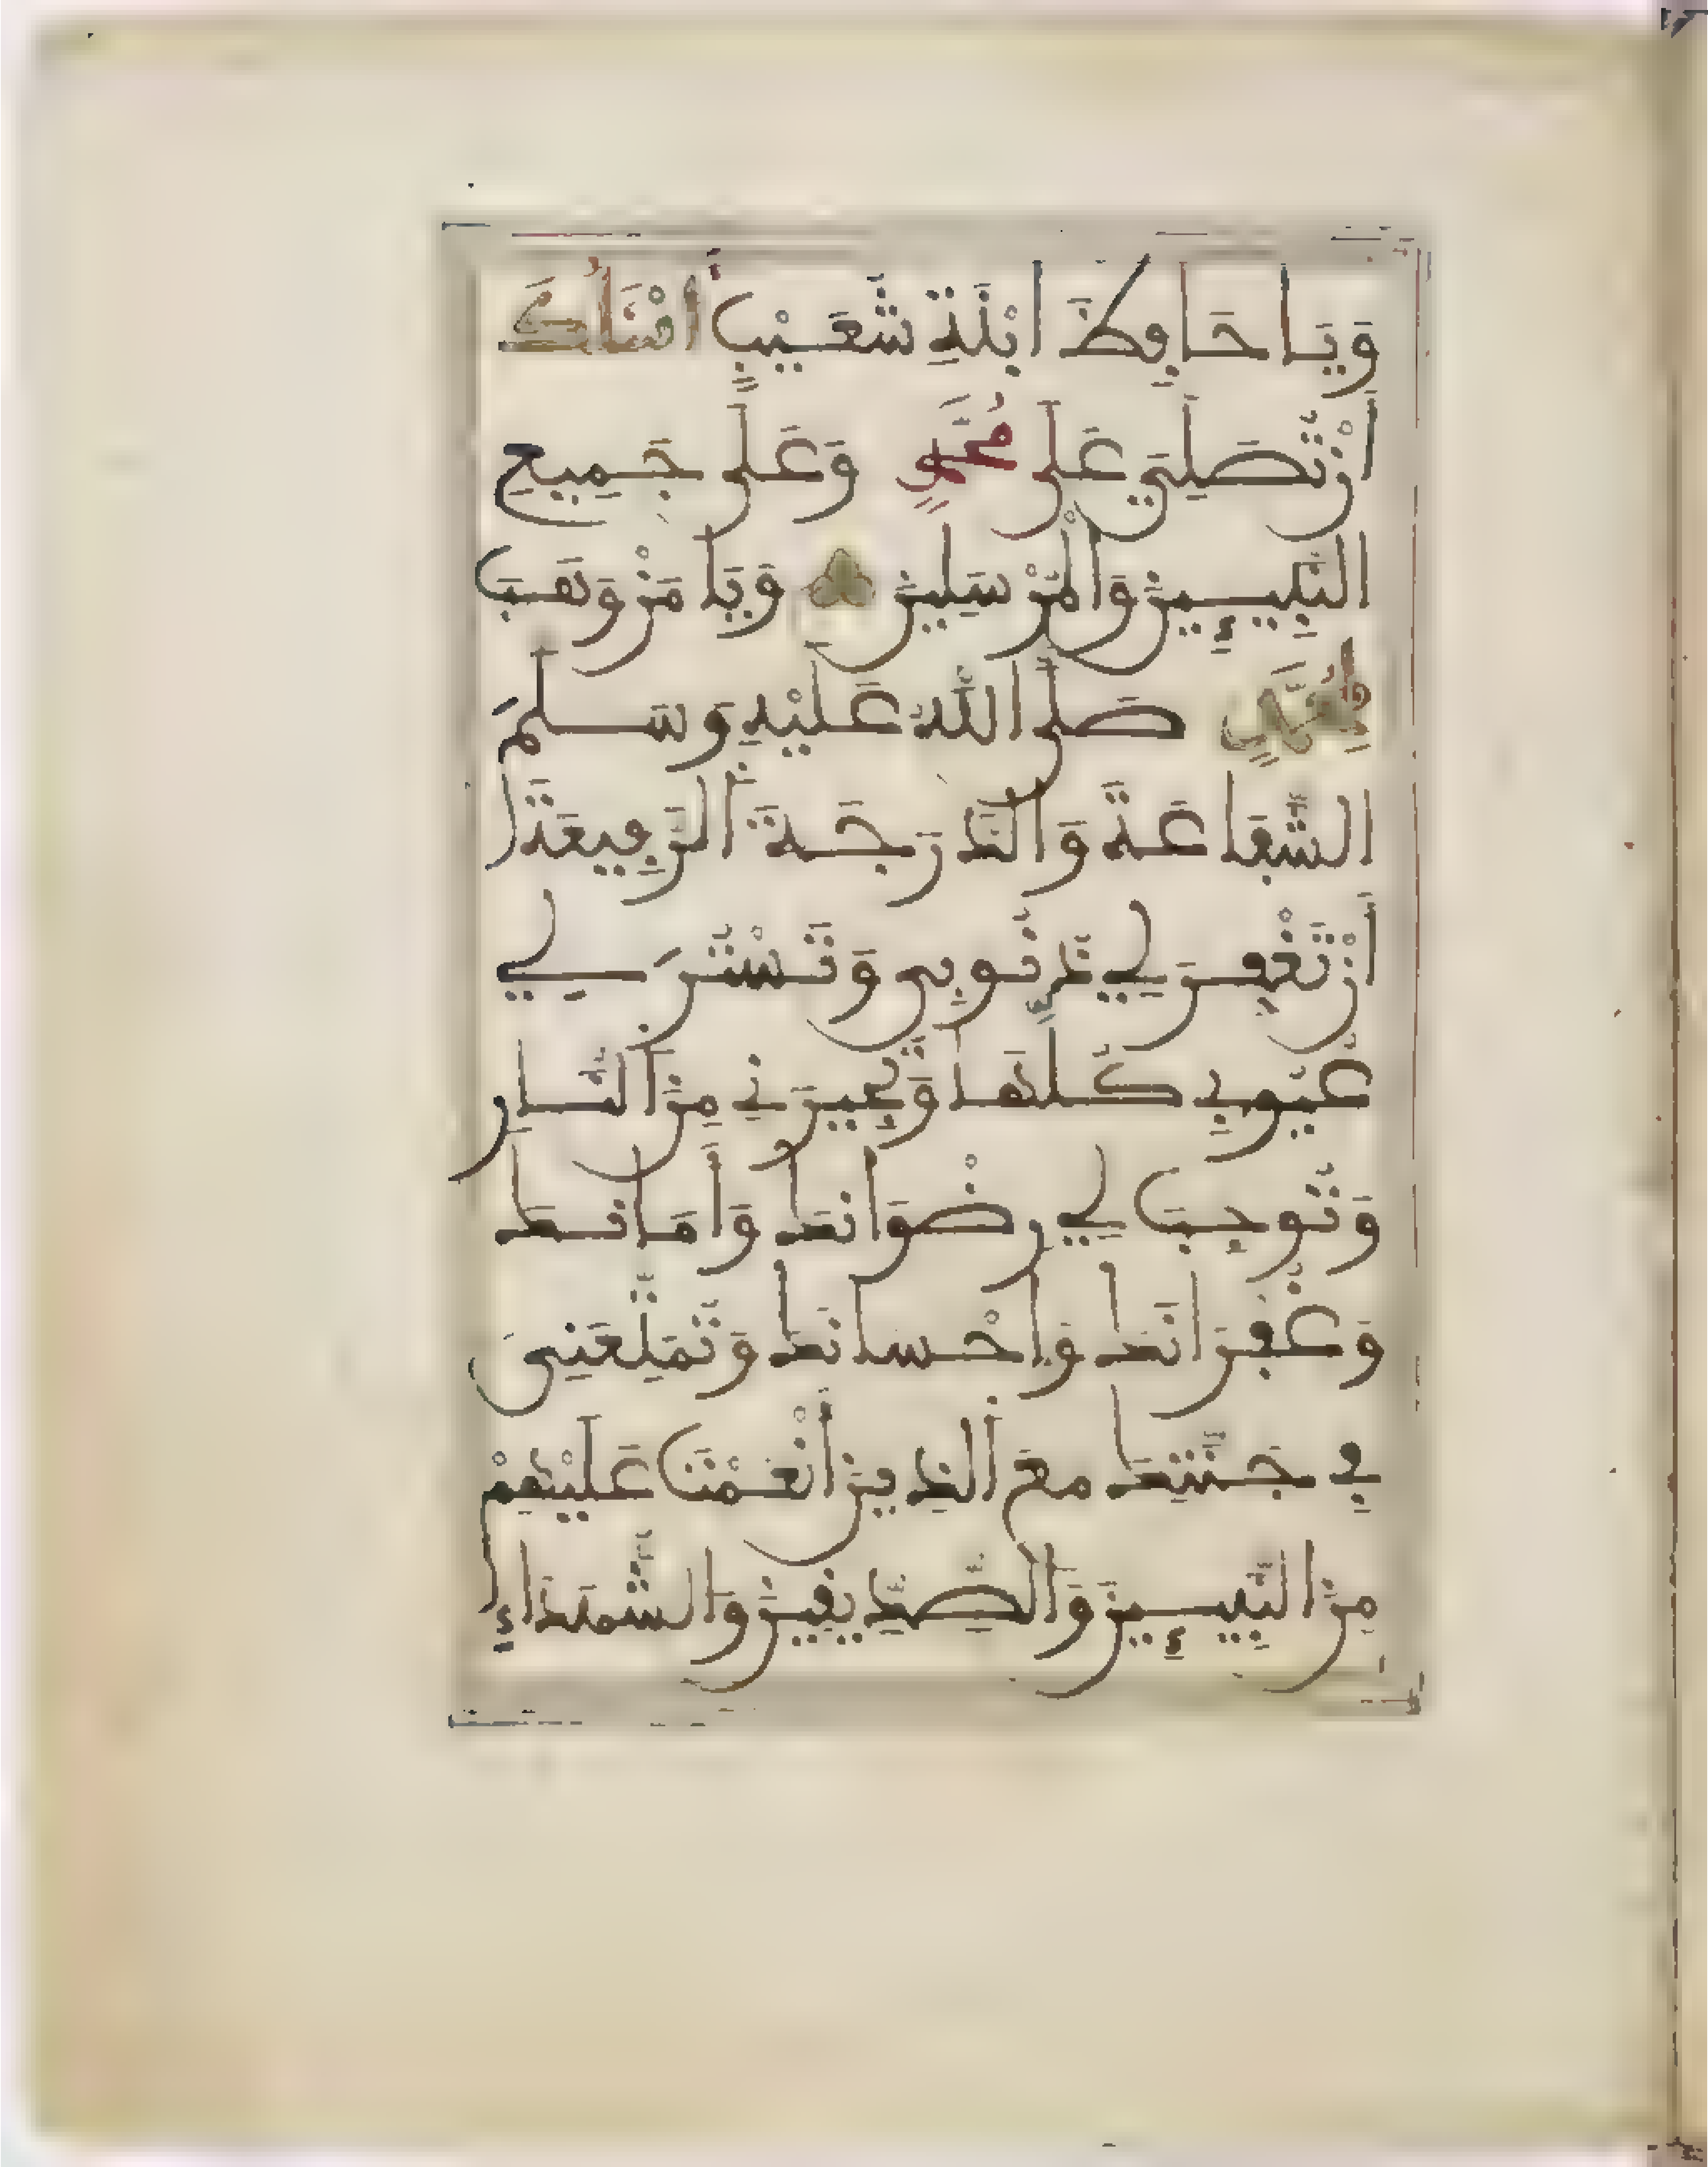 وَيَا حَافِظَ ابْنَةِ شُعَيْبٍ أَسْئَلُكَ
أَنْ تُصَلِّيَ عَلَى مُحَمَّدٍ وَعَلَى جَمِيعِ
النَّبِيـِٕينَ وَالْمُرْسَلِينَ وَيَا مَنْ وَهَبَ
لِمُحَمَّدٍ صَلَّى اللَّهُ عَلَيْهِ وَسَلَّمَ
الشَّفَاعَةَ وَالدَّرَجَةَ الرَّفِيعَةَ
أَنْ تَغْفِرَ لِي ذُنُوبِي وَتَسْتُرَ لِي
عُيُوبِي كُلَّهَا وَتُجِيرَنِي مِنَ النَّارِ
وَتُوجِبَ لِي رِضْوَانَكَ وَأَمَانَكَ
وَغُفْرَانَكَ وَإِحْسَانَكَ وَتُمَتِّعَنِي
فِي جَنَّتِكَ مَعَ الَّذِينَ أَنْعَمْتَ عَلَيْهِمْ
مِنَ النَّبِيـِٕينَ وَالصِّدِّيقِينَ وَالشُّهَدَاءِ